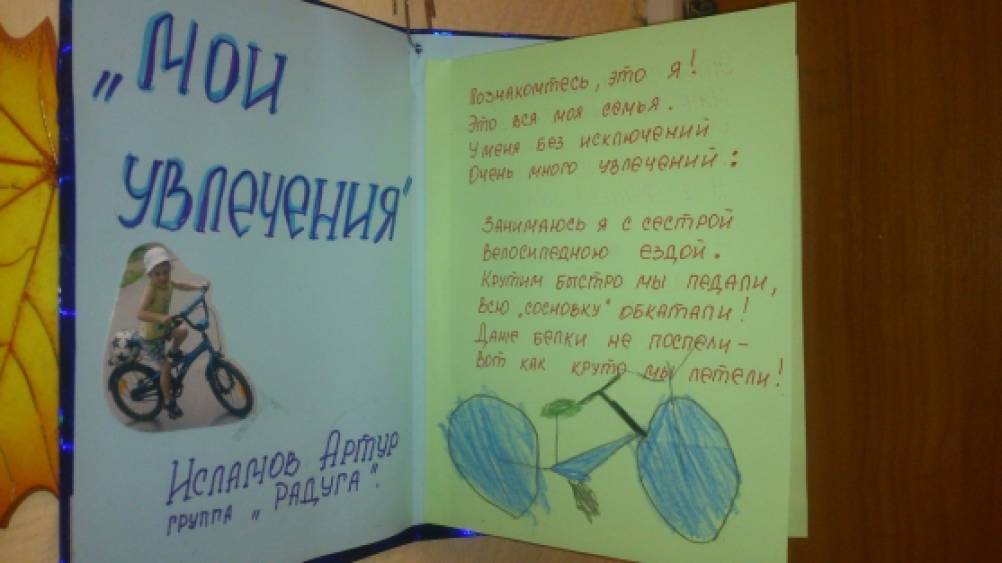 „Мои
увлечения"
Исламов Артур
группа „Радуга".
Познакомтесь, это я!
Это вся моя семья.
У меня без исключений
Очень много увлечений:
Занимаюсь я с сестрой
Велосипедною ездой.
Крутим быстро мы педали,
Всю „Сосновку" обкатали!
Даже белки не поспели –
Вот как круто мы летели!